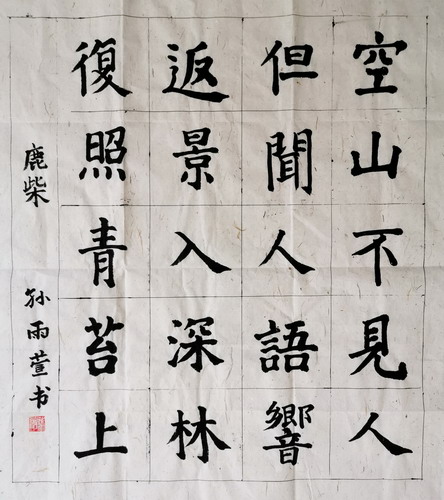 空山不見人
但聞人語響
返景入深林
復照青苔上
鹿柴
孙雨萱书